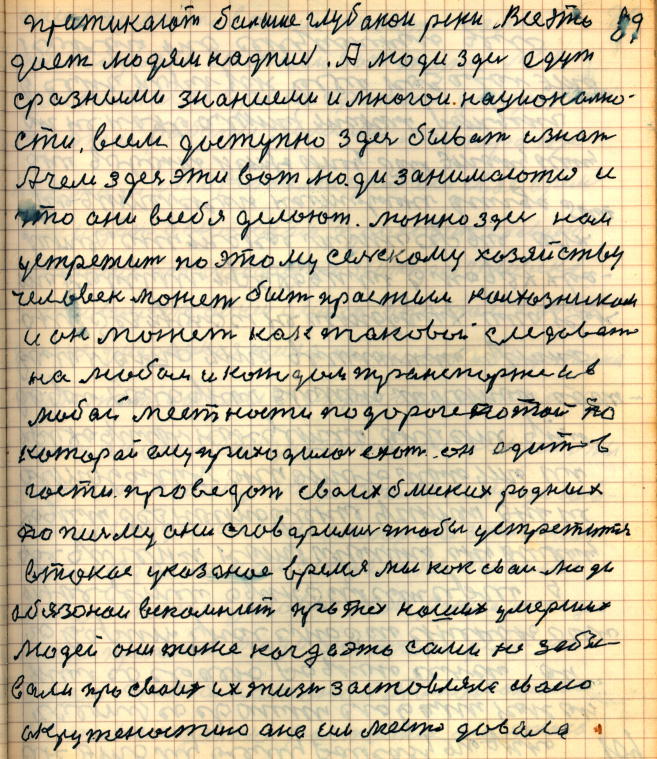 протикают большие глубакои реки. Все это 89
дает людям надпис. А люди здес едут
сразными знанием и многои национално-
сти, всем доступно здес быват изнат
Ачем здес эти вот люди занимаются и
что они всебя делоют. можно здес нам
устретит по этому селскому хозяйству
человек может быт прастым колхозником
и он может как таковой следоват
на любом и каждом транспорте и в
любай местности по дороге по той по
которай ему приходилос ехат. он едит в
гости. проведат сваих близких родных
по писму они сговарилис чтобы устретится
втокое указоное время мы как сваи люди
обязонаи вспомнит про тех наших умерших
людей они тоже когдато сами не забы-
вали про сваих их жизн заставляла свано
окруженостию она им место довала